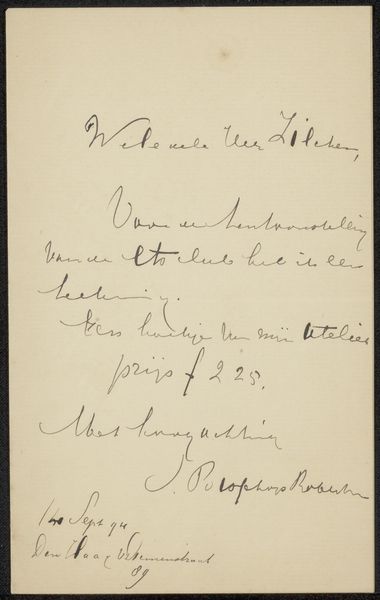 WelEdele Heer Zilcken,
Voor de tentoonstelling
van de Ets club heb ik een
teekening.
Een hoekje van mijn Atelier
prijs f 225.
Met hoogachting
S. Bisschop Robertson
14 Sept 94
Den Haag
89